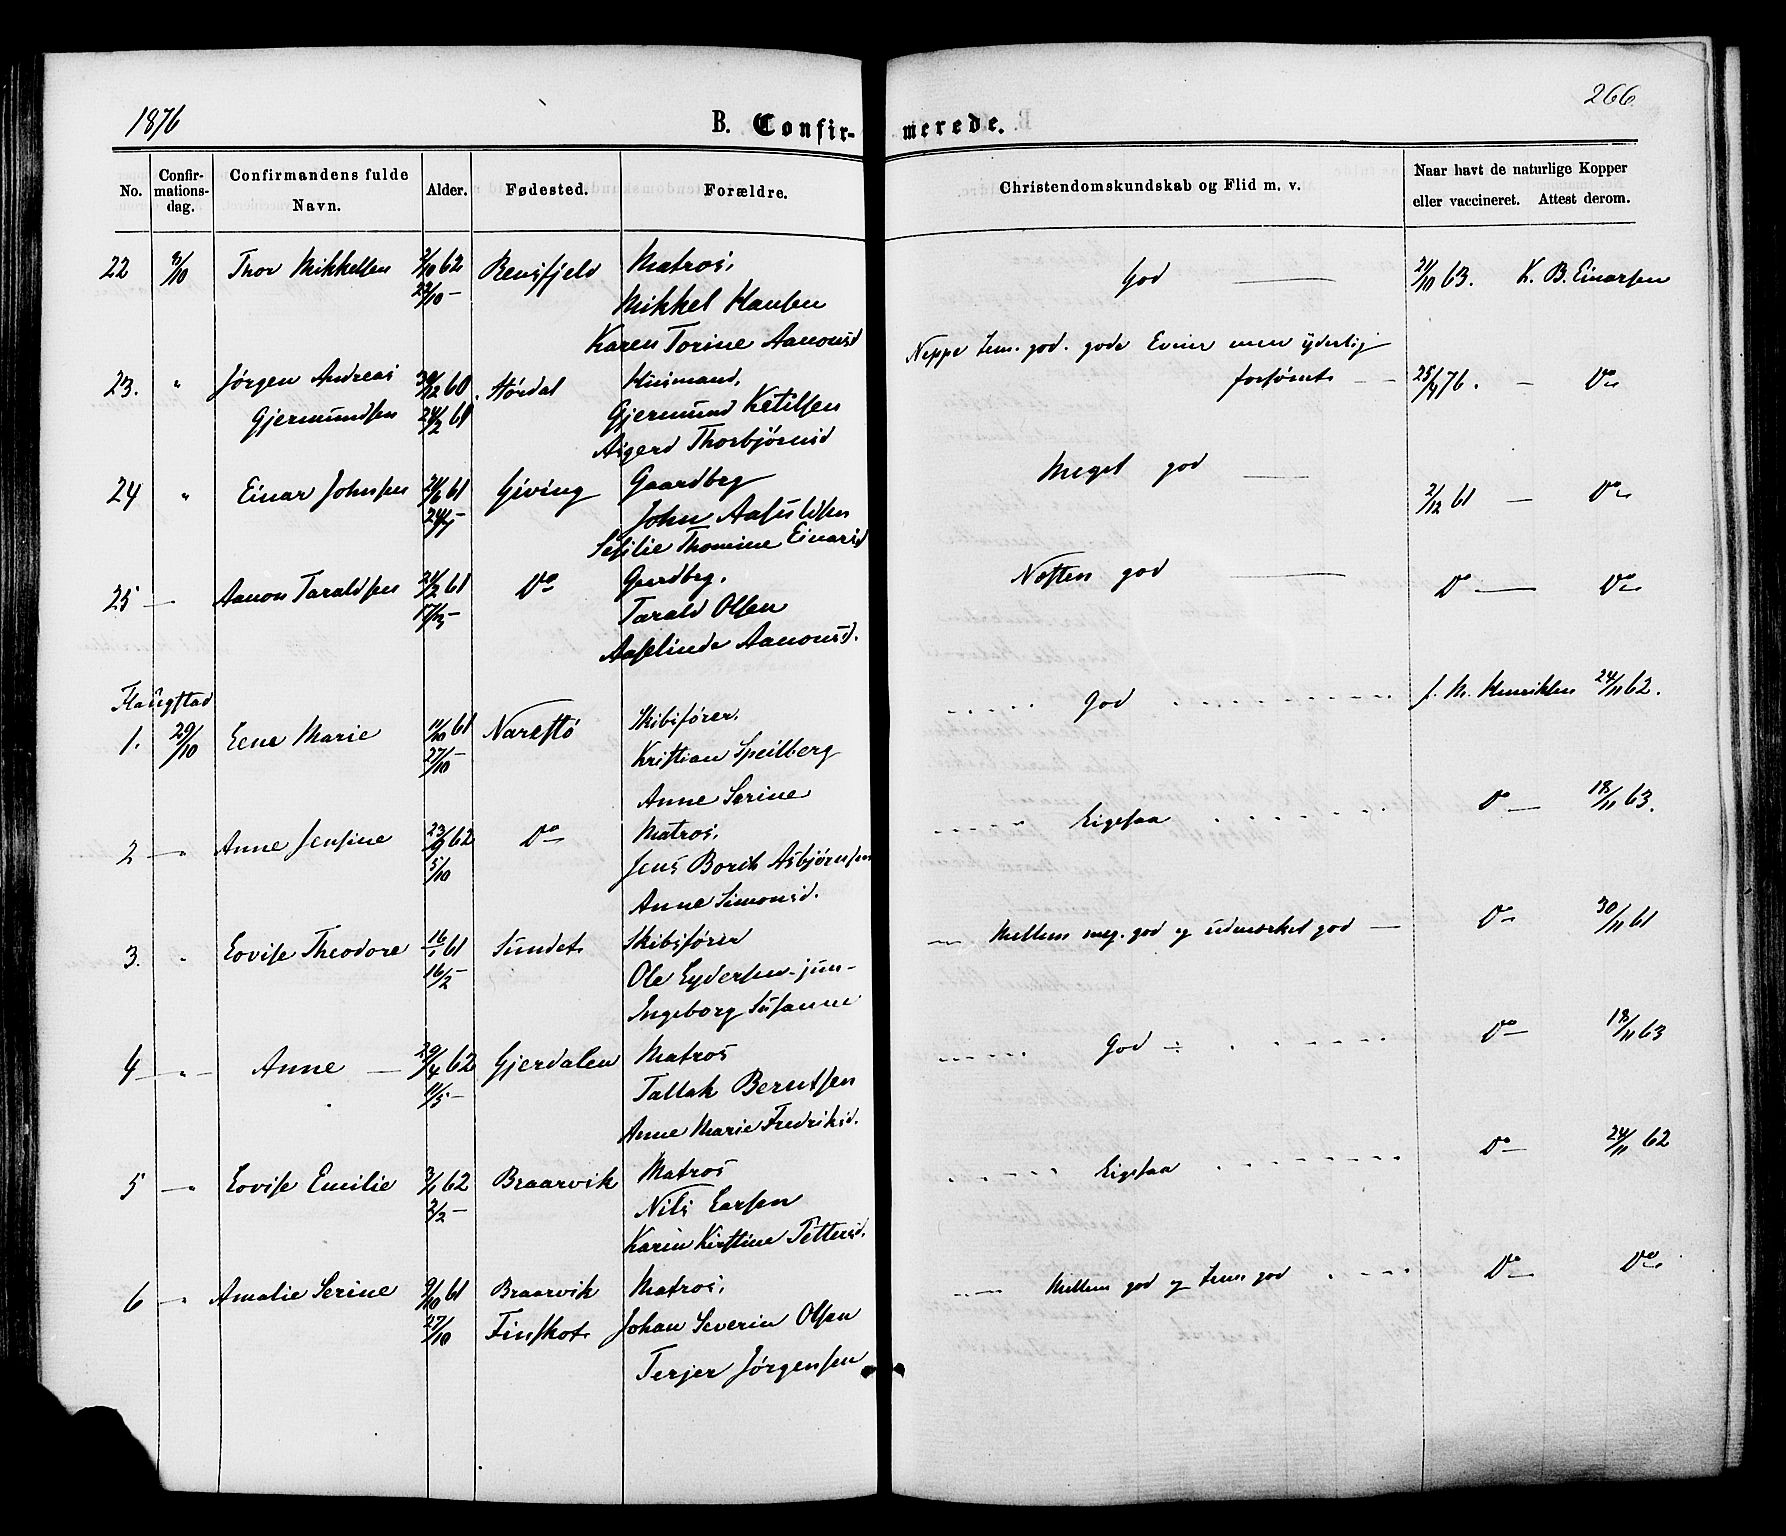 1876
B. Confir-
merede.
266
No.
Confir-
mations-
dag.
Confirmandens fulde
Navn.
Alder.
Fødested.
Forældre.
Christendomskundskab og Flid m. v.
Naar havt de naturlige Kopper
eller vaccineret. Attest derom.
22 3/10 Thor Mikkelsen 2/10 62 Rensfjeld Matros, God 21/10 63. K. B. Einarsen
Mikkel Hansen
Karen Torine Aanonsd
Neppe tem. god. gode Evner men yderlig
23. " Jørgen Andreas 30/12 60 Husmand, forsømt 25/9 76. — Do
Gjermundsen 24/2 61 Gjermund Ketilsen
Asgerd Thorbjørnsd
24 " Einar Johnsen 61 Giving Gaardbrg Meget god 2/12 61 — Do
John Aasulfsen
Sesilie Thomine Einarsd
25 — Aanon Taraldsen 21/2 61 Do Gardbrg. Næsten god Do — Do
Tarald Olsen
Aaslinde Aanonsd.
Flangstad
1. 29/10 Lene Marie 11/10 61 Narestø Skibsfører. God J. M. Henriksen 24/11 62.
27/10 — Kristian Speilberg
Anne Serine
2 — " Anne Jensine 23/9 62 Do Matros, Ligesaa Do — 18/11 63.
5/10 Jens Borch Asbjørnsen
Anne Simonsd.
3. " Lovise Theodore 16/1 61 Sundet Skibsfører Mellem meg. god og udmærket god — Do 30/11 61
16/2 — Ole Eydersen jun —
Ingeborg Susanne
4 — " — Anne — 29/4 62 Gjerdalen Matros God Do — 18/11 63
11/5 — Tallak Berntsen
Anne Marie Fredriksd.
5 — " Lovise Emilie 3/1 62 Braarvik Matros Ligesaa Do — 24/11 62
2/2 — Nils Larsen
Karin Kirstine Pettersd.
6 — " Amalie Serine 9/10 61 Braarvik Matros, Mellem god og tem. god Do — Do
27/10 Finskot Johan Severin Olsen
Terjer Jørgensen